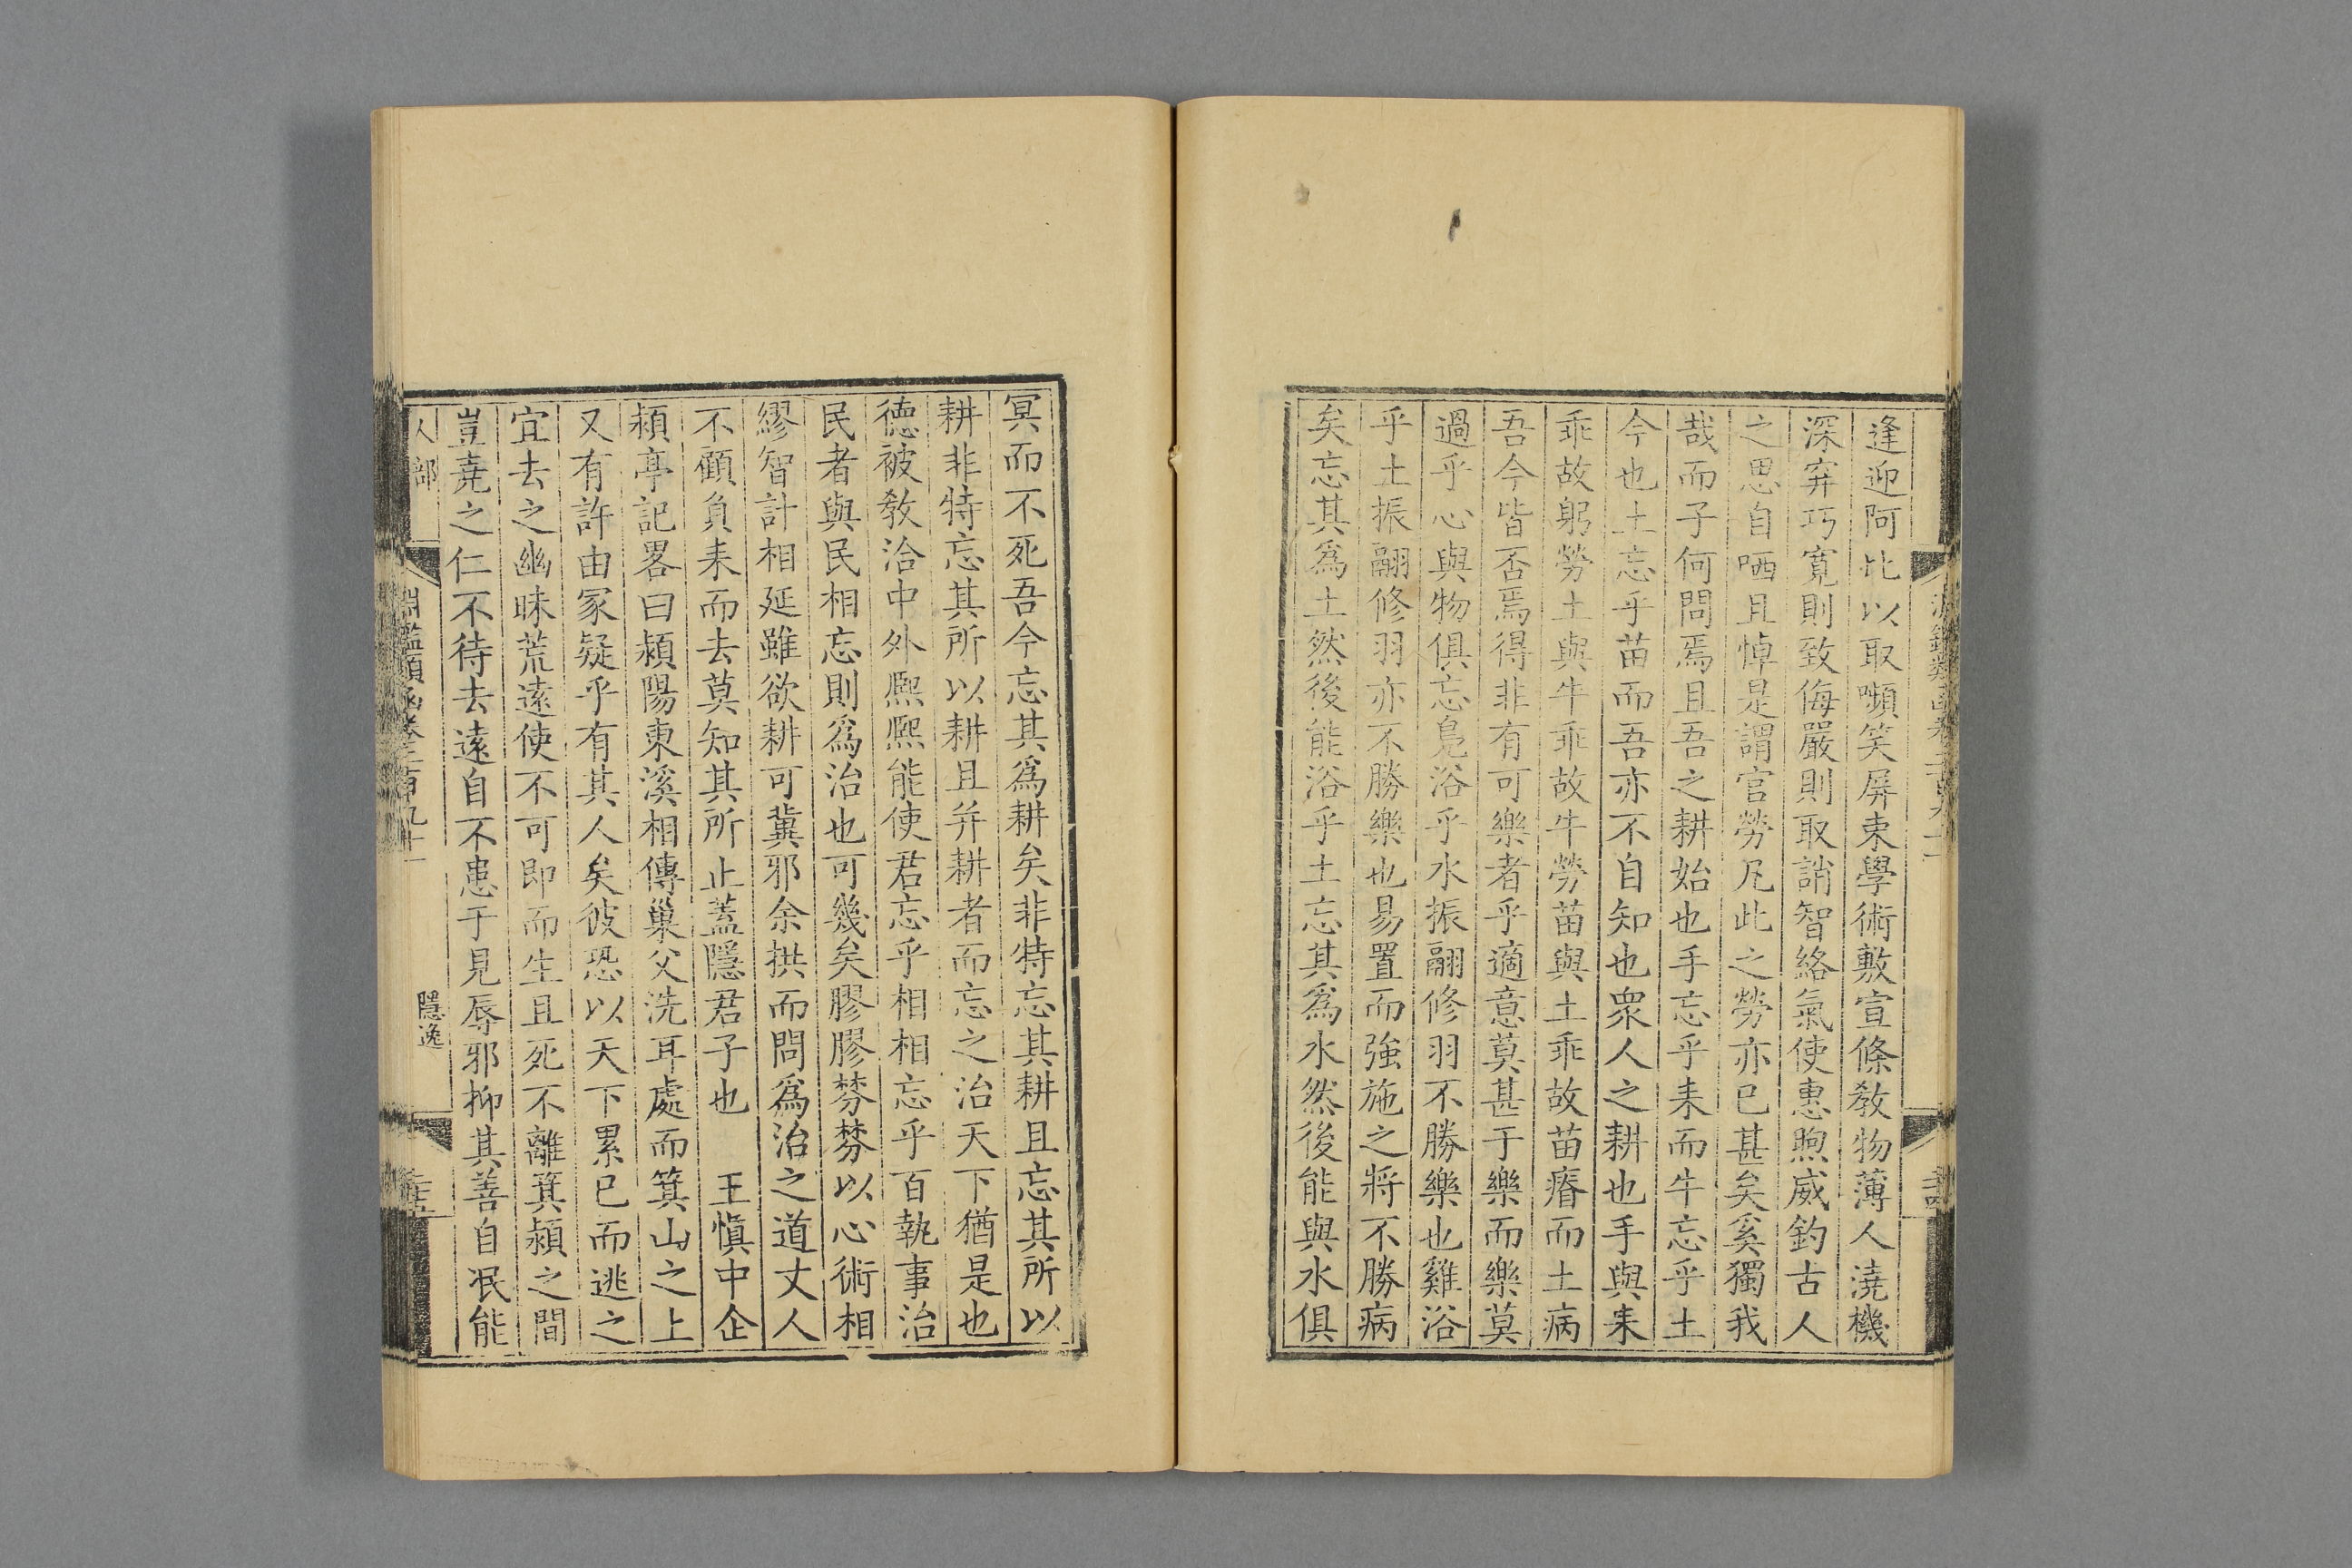 逢迎阿比以取嚬笑屏束學術敷宣條敎物薄人澆機
深穽巧寬則致侮嚴則取誚智絡氣使惠煦威釣古人
之思自哂且悼是謂官勞凡此之勞亦已甚矣奚獨我
哉而子何問焉且吾之耕始也手忘乎耒而牛忘乎土
今也土忘乎苗而吾亦不自知也衆人之耕也手與耒
乖故躬勞土與牛乖故牛勞苗與土乖故苗瘠而土病
吾今皆否焉得非有可樂者乎適意莫甚于樂而樂莫
過乎心與物俱忘鳧浴乎水振翮修羽不勝樂也雞浴
乎土振翮修羽亦不勝樂也易置而強施之將不勝病
矣忘其爲土然後能浴乎土忘其爲水然後能與水俱
冥而不死吾今忘其爲耕矣非特忘其耕且忘其所以
耕非特忘其所以耕且并耕者而忘之治天下猶是也
德被敎洽中外熈熈能使君忘乎相相忘乎百執事治
民者與民相忘則爲治也可幾矣膠膠棼棼以心術相
繆智計相延雖欲耕可兾邪余拱而問爲治之道丈人
不顧負耒而去莫知其所止蓋隱君子也　王愼中企
潁亭記畧曰潁陽東溪相傳巢父洗耳處而箕山之上
又有許由冢疑乎有其人矣彼恐以天下累已而逃之
宜去之幽昧荒遠使不可即而生且死不離箕潁之間
豈堯之仁不待去遠自不患于見辱邪抑其善自冺能
人部
淵鑑類函卷二百九十一
隱逸